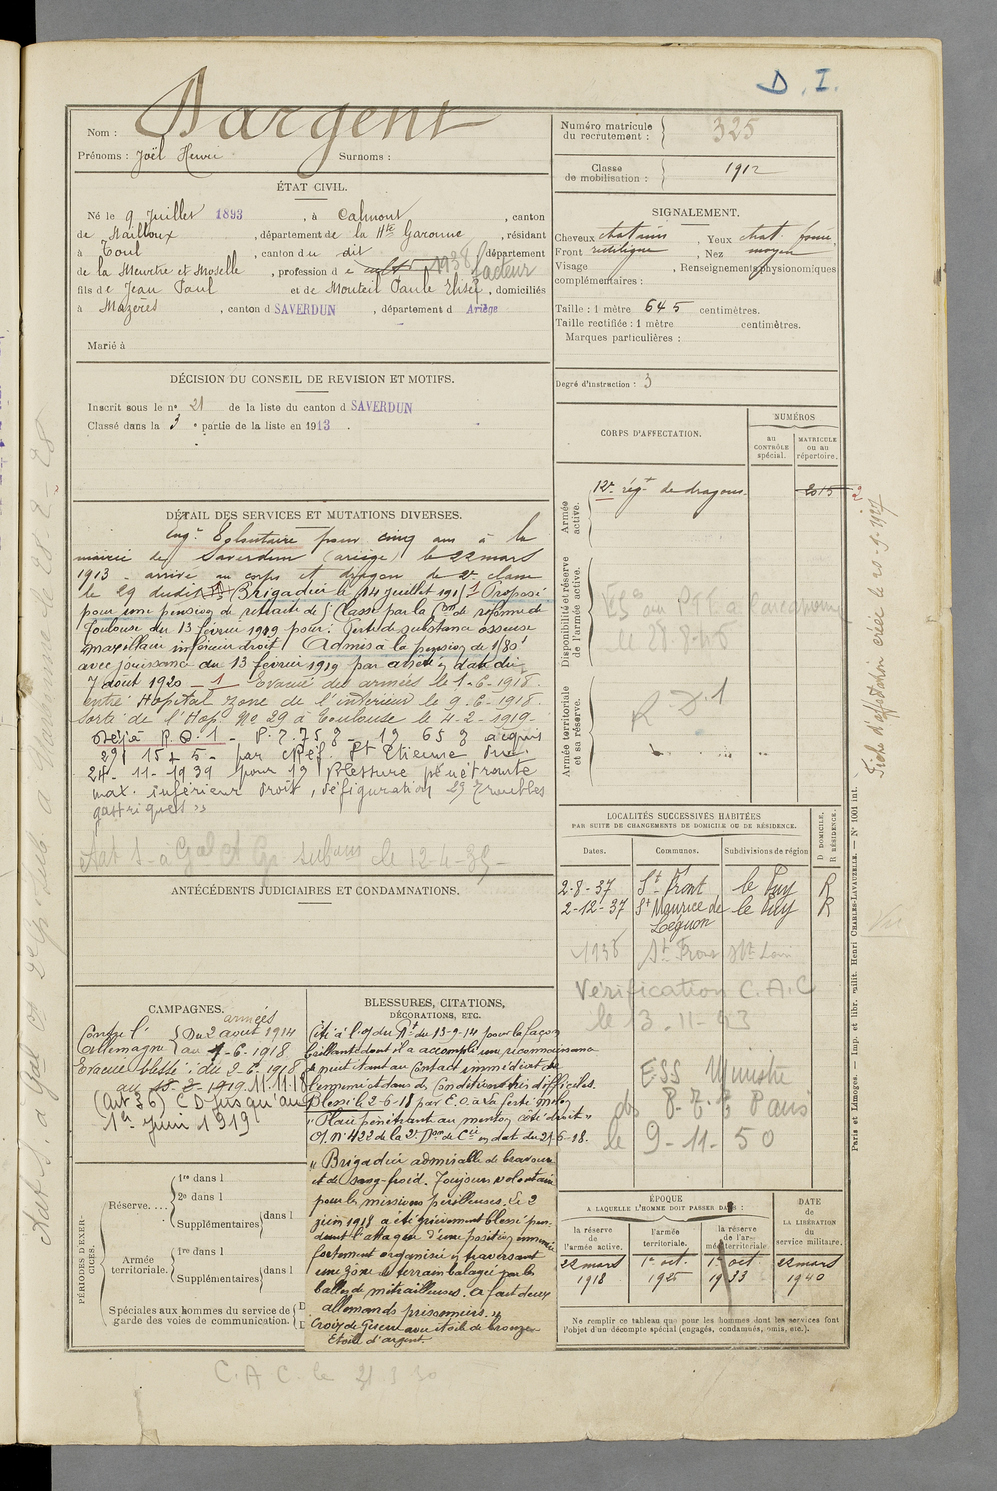 D. I.
Nom : Dargent
Prénoms : Joël Henri Surnoms :
ÉTAT CIVIL.
Né le 9 Juillet 1893, à Calmont, canton
de Nailloux, département de la Hte Garonne, résidant
à Toul, canton du dit, département
de la Meurthe et Moselle, profession de cultr 1938 facteur
fils de Jean Paul et de Monteil Paule Elisée, domiciliés
à Mazères, canton d SAVERDUN, département d Ariège
Marié à
DÉCISION DU CONSEIL DE REVISION ET MOTIFS.
Inscrit sous le no 21 de la liste du canton d SAVERDUN
Classé dans la 3e partie de la liste en 1913.
DÉTAIL DES SERVICES ET MUTATIONS DIVERSES.
Eng. Volontaire pour cinq ans à la
mairie de Saverdun (ariège) le 22 mars
1913 - arrivé au corps et dragon de 2e classe
le 29 dudit Brigadier le 14 juillet 191 1 Proposé
pour une pension de retraite de Classe par la Con de réforme de
Toulouse du 13 février 1919 pour: Perte de substance osseuse
maxillaire inférieur droit Admis à la pension de
avec jouissance du 13 février 1919 par arrêté en date du
7 août 1920 - 1 Evacué des armées le 1-6-1918.
entré Hopital zone de l'intérieur le 9-6-1918.
Sorti de l'Hop. No 29 à Toulouse le 4-2-1919-
Déjà P.D.1 - P. 75% - 1° 65% acquis
2°) 15 + 5 - par cRéf. St Etienne du
24-11-1939 pour 1°) Blessure pénétrante
max. inférieur droit, défiguration 2°) Troubles
gastriques »
le 12-4-35-
ANTÉCÉDENTS JUDICIAIRES ET CONDAMNATIONS.
CAMPAGNES.
armées
Contre l' Du 2 août 1914
Allemagne au 1-6-1918
Evacué blessé: du 2-6-1918
au 18-2-1919 11.11.18
(Art 36) CD jusqu'au
1er juin 1919
BLESSURES, CITATIONS,
DÉCORATIONS, ETC.
Cité à l'o/ du Rt du 13-9-14 pour la façon
brillante dont il a accompli une reconnaissance
à peut tant au Contact immédiat de
l'ennemi et dans des Conditions très difficiles.
Blessé le 2-6-18 par E.O. à La Ferté Milon
"Plaie pénétrante au menton côté droit"
O/. No 422 de la 2e Don de Cie en dat du 27-6-18.
"Brigadier admirable de bravoure
et de sang-froid. Toujours volontaire
pour les missions périlleuses. Le 2
juin 1918 a été grièvement blessé pen-
dant l'attaque d'une position ennemie
fortement organisée en traversant
une zône de terrain balayée par les
balles de mitrailleuses. A fait deux
allemands prisonniers."
Croix de Guerre avec étoile de bronze
Etoile d'argent.
PÉRIODES D'EXERCICES.
Réserve....
1re dans l
2e dans l
Supplémentaires dans l
Armée territoriale.
1re dans l
Supplémentaires dans l
Spéciales aux hommes du service de
garde des voies de communication.
C.A.C. le 21 3 30
Numéro matricule
du recrutement : 325
Classe
de mobilisation : 1912
SIGNALEMENT.
Cheveux chatains, Yeux chat. fonc.
Front rectiligne, Nez moyen
Visage, Renseignements physionomiques
complémentaires :
Taille : 1 mètre 645 centimètres.
Taille rectifiée : 1 mètre centimètres.
Marques particulières :
Degré d'instruction : 3
CORPS D'AFFECTATION.
NUMÉROS
au
CONTRÔLE
spécial.
MATRICULE
ou au
répertoire.
Armée
active.
12e régt de dragons. 2015
Disponibilité et réserve
de l'armée active.
le 28-8-45
Armée territoriale
et sa réserve.
R.D.1
Fiche d'affectation créée le 20-9-1927
LOCALITÉS SUCCESSIVES HABITÉES
PAR SUITE DE CHANGEMENTS DE DOMICILE OU DE RÉSIDENCE.
D DOMICILE.
R RÉSIDENCE.
Dates. Communes. Subdivisions de région
2-8-37 St Front le Puy R
2-12-37 St Maurice de le Puy R
Lignon
1938 St Front Hte Loire
Vérification C.A.C
le 13.11-93
ESS Ministre
des P.T.T Paris
le 9-11-50
ÉPOQUE
A LAQUELLE L'HOMME DOIT PASSER DANS :
la réserve
de
l'armée active.
l'armée
territoriale.
la réserve
de l'ar-
mée territoriale.
DATE
de
LA LIBÉRATION
du
service militaire.
22 mars 1er oct. 1er oct. 22 mars
1918 1925 1933 1940
Ne remplir ce tableau que pour les hommes dont les services font
l'objet d'un décompte spécial (engagés, condamnés, omis, etc.).
Paris et Limoges. — Imp. et libr. milit. Henri CHARLES-LAVAUZELLE. — No 1001 int.